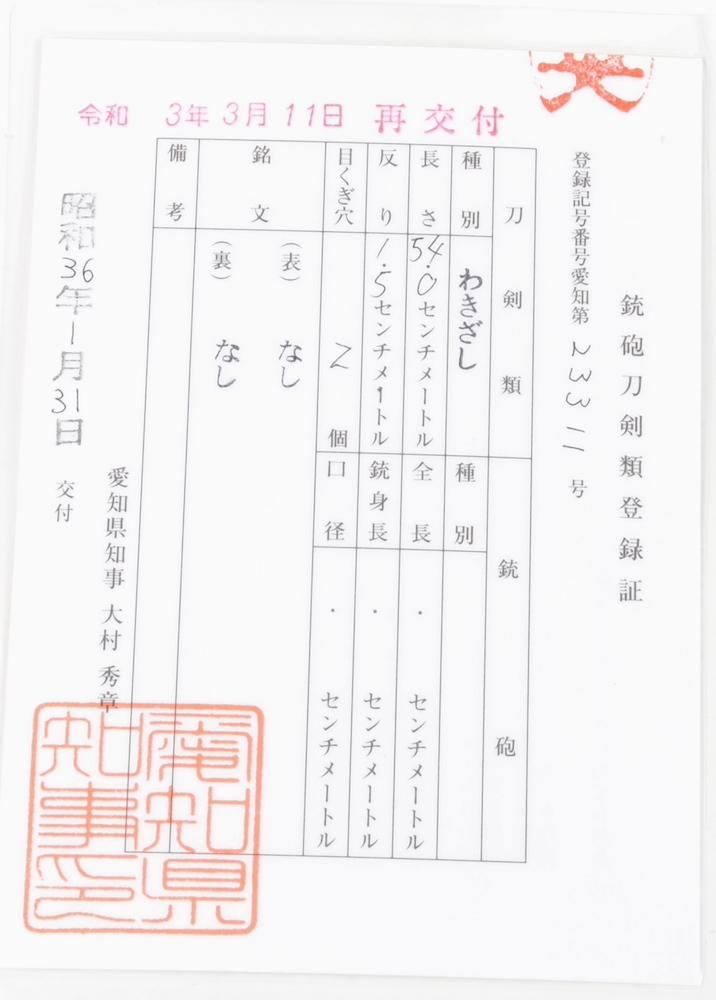 銃砲刀剣類登録証
登録記号番号愛知第23311号
刀剣類
銃砲
種別
わきざし
種別
長さ
54.0センチメートル
全長
・センチメートル
反り
1.5センチメートル
銃身長
・センチメートル
目くぎ穴
2個
口径
・センチメートル
銘文
(表)なし
(裏)なし
備考
昭和36年1月31日交付
愛知県知事 大村 秀章
愛知県
知事印
令和 3年3月11日 再交付